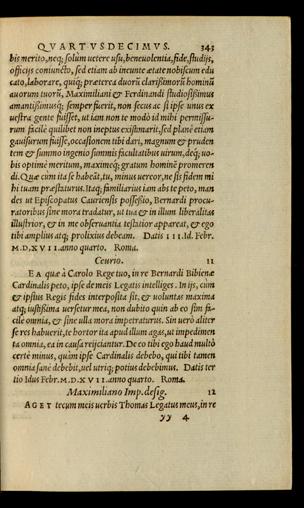 QVARTVSDECIMVS. 343
bis merito, neq; solùm uetere usu, beneuolentia, fide, studijs,
officijs coniuncto, sed etiam ab ineunte ætate nobiscum edu
cato, laborare, quiq; præterea duorũ clarissimorũ hominũ
auorum tuorũ, Maximiliani & Ferdinandi studiosissimus
amantissimusq; semper fuerit, non secus ac si ipse unus ex
uestra gente fuisset, ut iam non te modò id mihi permissu-
rum facilè quilibet non ineptus existimarit, sed planè etiam
gauisurum fuisse, occasionem tibi dari, magnum & pruden
tem & summo ingenio summis facultatibus uirum, deq́; uo-
bis optimè meritum, maximeq́; gratum hominē promeren
di. Quæ cum ita se habeãt, tu, minus uereor, ne sis fidem mi
hi tuam præstaturus. Itaq; familiarius iam abs te peto, man
des ut Episcopatus Cauriensis possessio, Bernardi procu-
ratoribus sine mora tradatur, ut tua & in illum liberalitas
illustrior, & in me obseruantia testatior appareat, & ego
tibi amplius atq; prolixius debeam. Datis III. Id. Febr.
M.D.XVII. anno quarto. Roma.
Ceurio. 11
EA quæ à Carolo Rege tuo, in re Bernardi Bibienæ
Cardinalis peto, ipse de meis Legatis intelliges. In ijs, cùm
& ipsius Regis fides interposita sit, & uoluntas maxima
atq; iustissima uersetur mea, non dubito quin ab eo sim fa-
cilè omnia, & sine ulla mora impetraturus. Sin uerò aliter
se res habuerit, te hortor ita apud illum agas, ut impedimen
ta omnia, ea in causa reijciantur. De eo tibi ego haud multò
certè minus, quim ipse Cardinalis debebo, qui tibi tamen
omnia sanè debebit, uel utriq; potius debebimus. Datis ter
tio Idus Febr. M.D.XVII. anno quarto. Roma.
Maximiliano Imp. desig. 12
AGET tecum meis uerbis Thomas Legatus meus, in re
yy 4